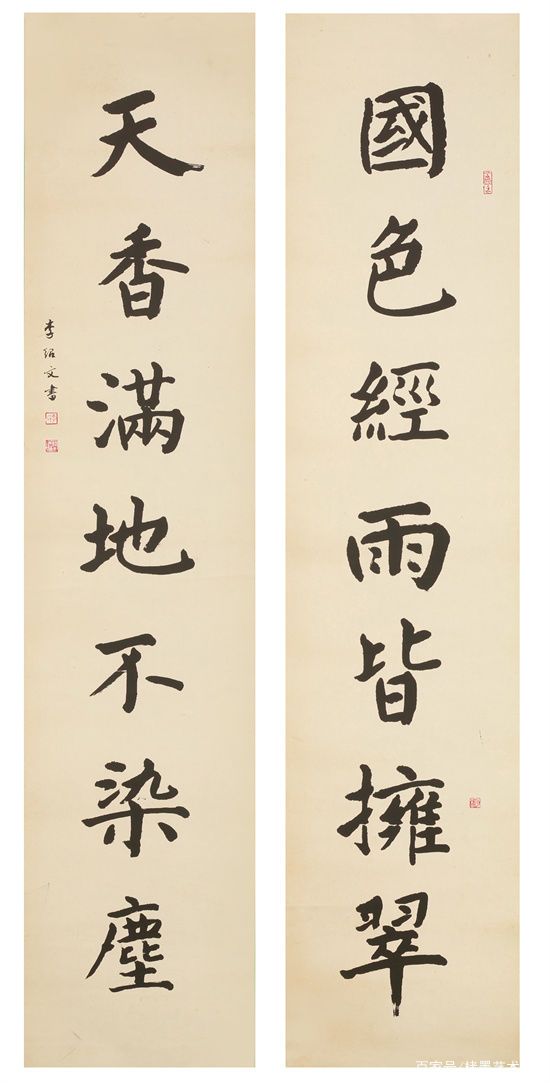 國色經雨皆擁翠
天香滿地不染塵
李紹文書
百家号/